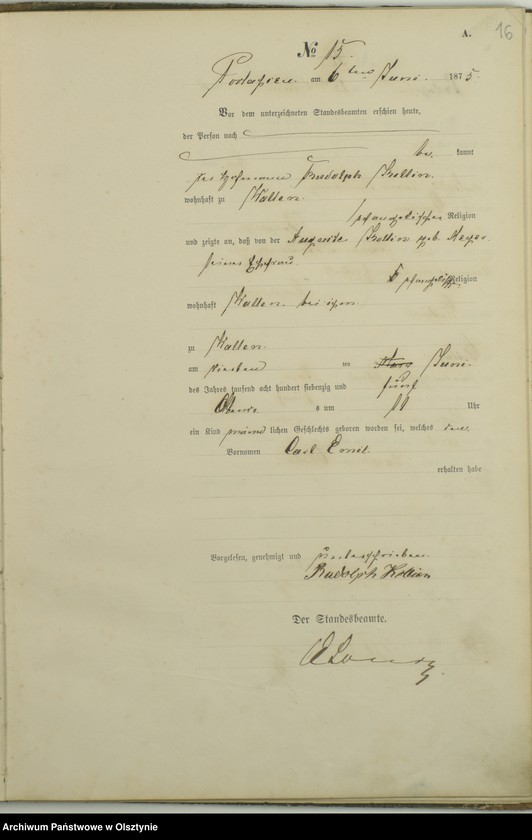 16
A.
№ 15.
am 6ten Juni. 1875
Vor dem unterzeichneten Standesbeamten erschien heute,
der Person nach
be kannt
Rudolph
wohnhaft zu Wallen.
evangelischer Religion
und zeigte an, daß von der Auguste geb.
seiner Ehefrau
evangelischer Religion
wohnhaft Wallen bei ihm
zu Wallen
am vierten Juni.
des Jahres tausend acht hundert siebenzig und fünf
Abends s um 11 Uhr
ein Kind männ lichen Geschlechts geboren worden sei, welches den
Vornamen Carl Emil.
erhalten habe
Vorgelesen, genehmigt und unterschrieben.
Rudolph
Der Standesbeamte.
Archiwum Państwowe w Olsztynie